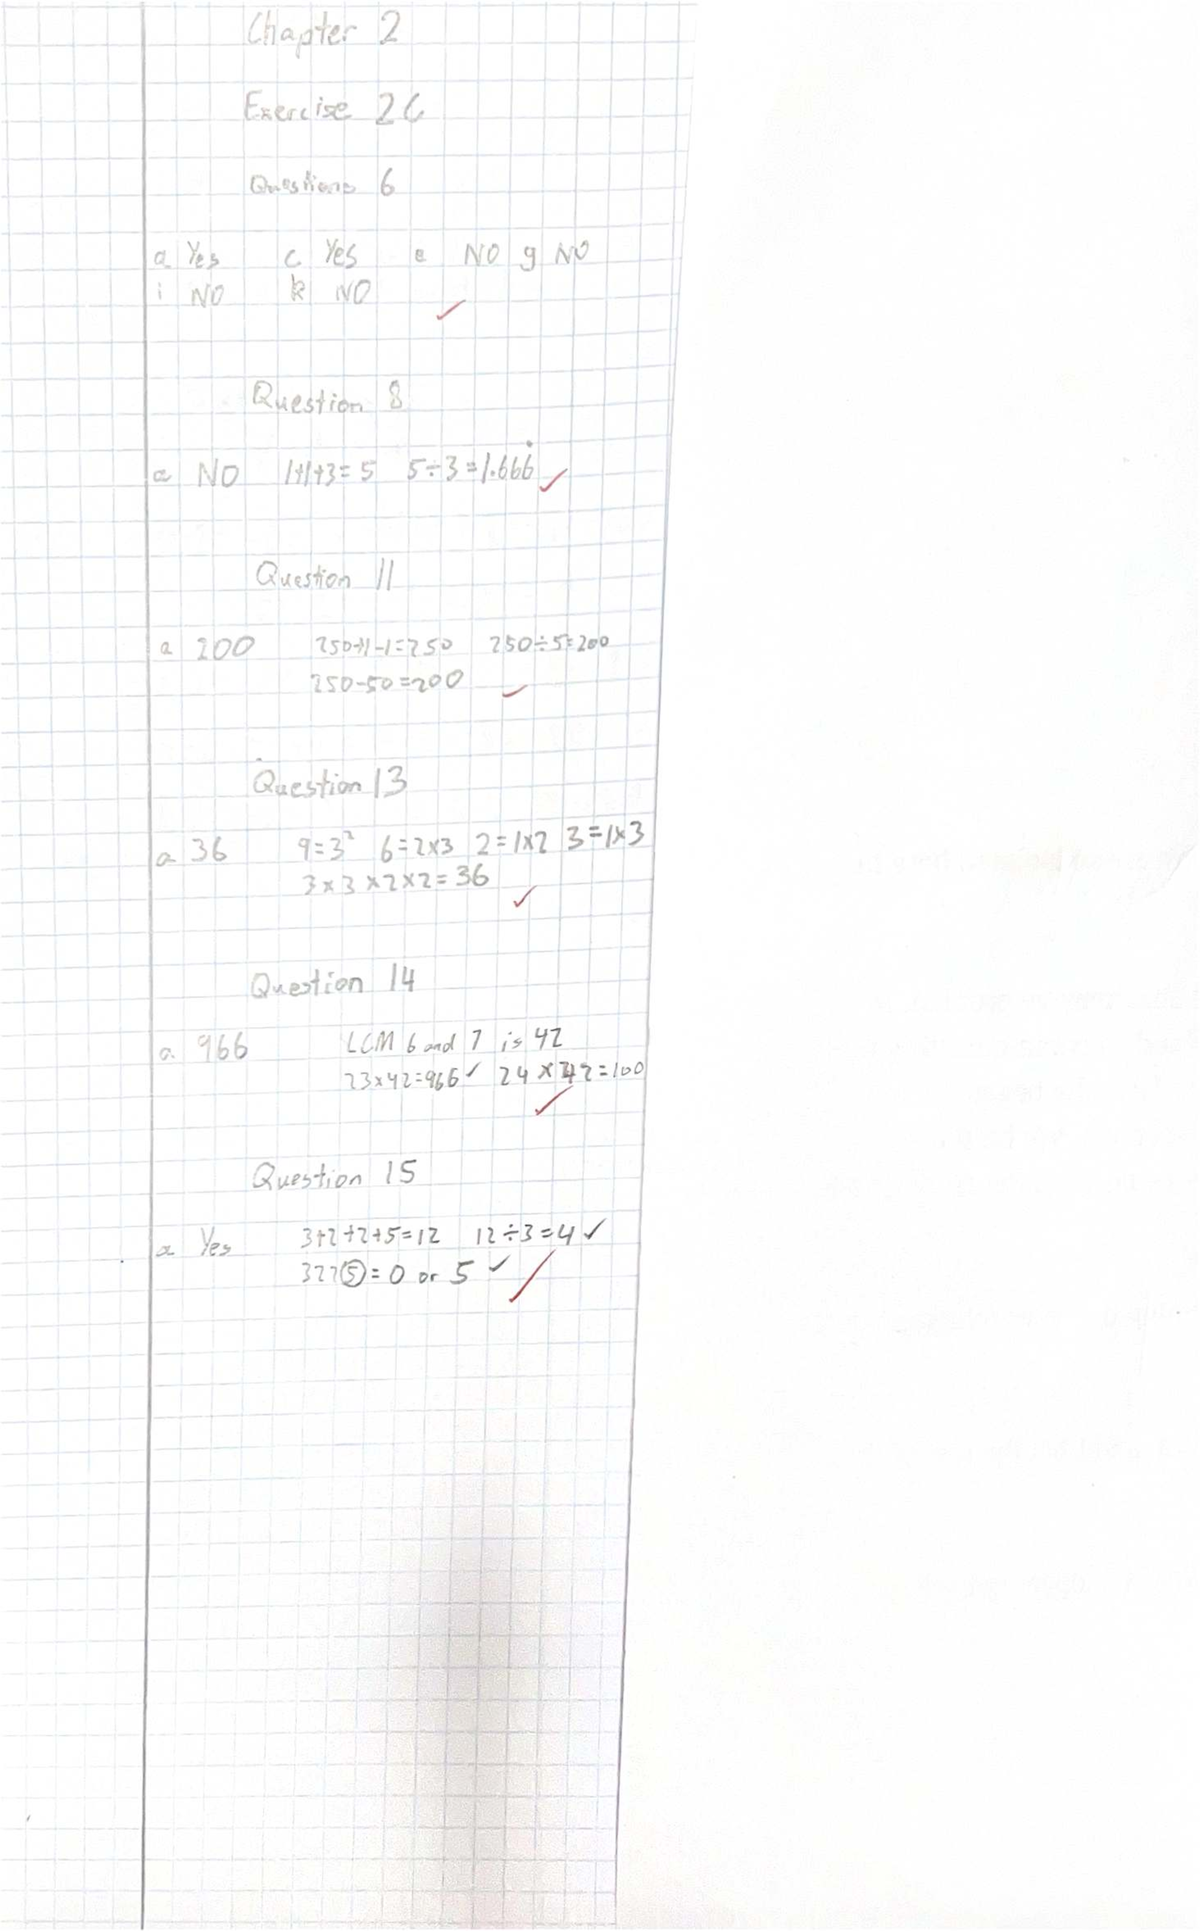 Chapter 2
Exercise 2C
Questions 6
a Yes c Yes e NO g NO
i NO k NO
Question 8
a NO 1+1+3=5 5÷3=1.666̇
Question 11
a 200 250+1-1=250 250÷5=200
250-50=200
Question 13
a 36 9=3² 6=2×3 2=1×2 3=1×3
3×3×2×2=36
Question 14
a 966 LCM 6 and 7 is 42
23×42=966✓ 24×42=100
Question 15
a Yes 3+2+2+5=12 12÷3=4✓
322⑤=0 or 5 ✓